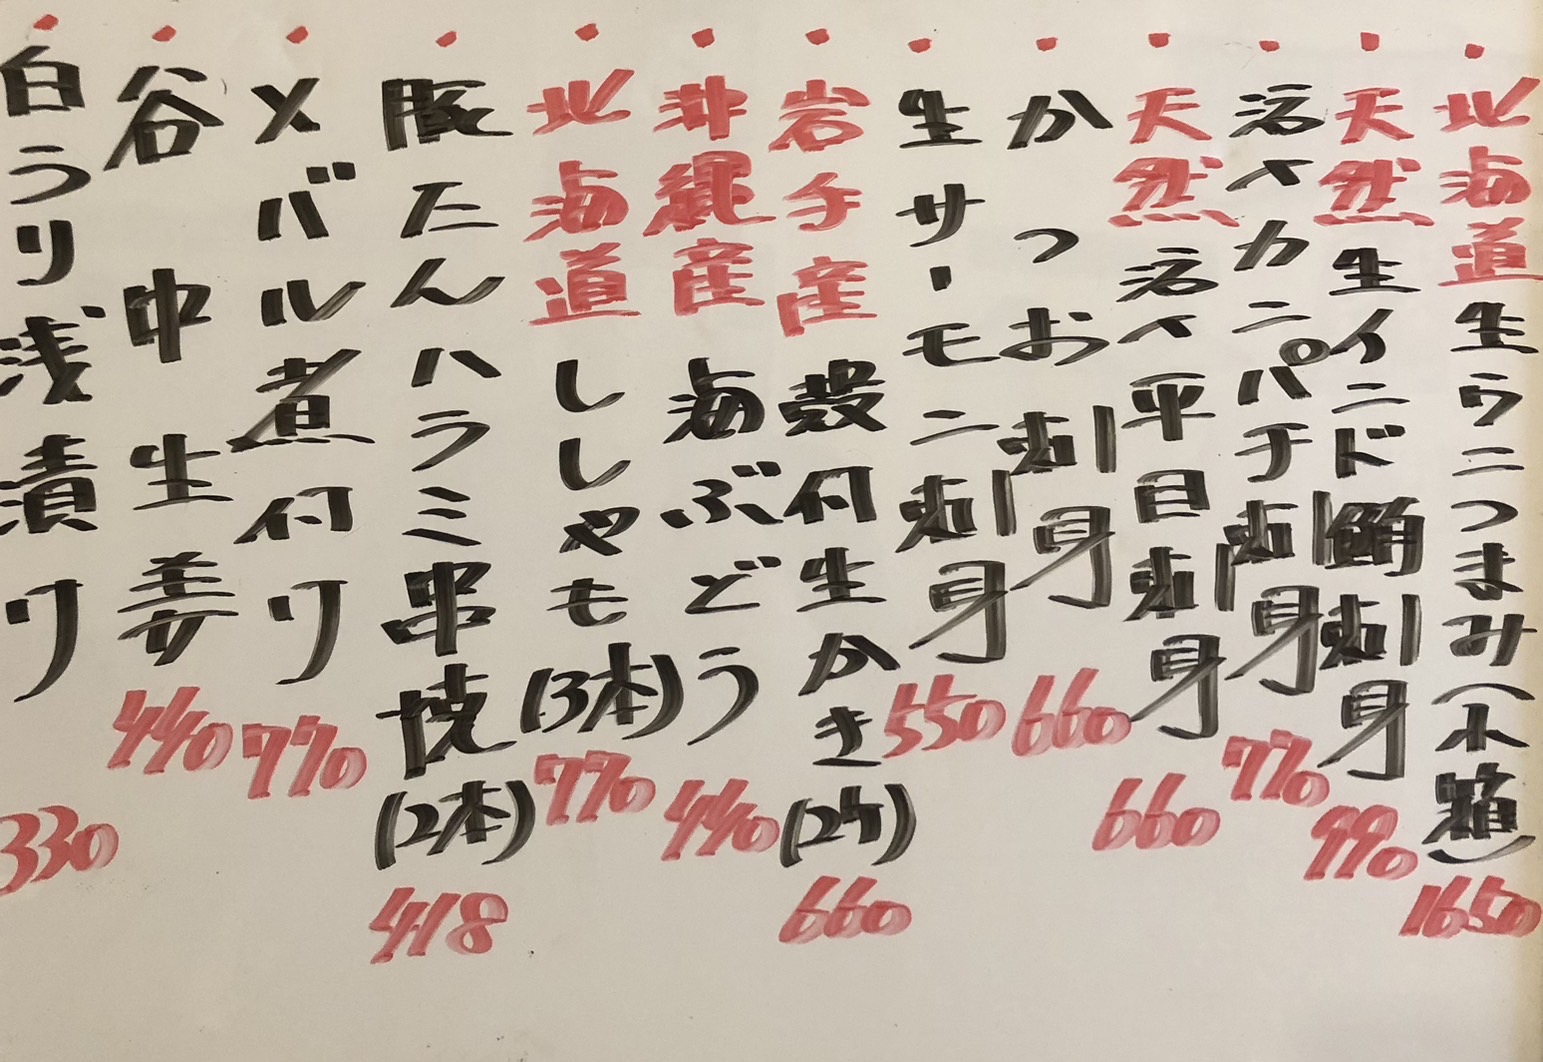 北海道生ウニつまみ(小箱) 1650
天然生インド鮪刺身 990
活〆カンパチ刺身 770
天然活〆平目刺身 660
かつお刺身 660
生サーモン刺身 550
岩手産殻付生かき(2ケ) 660
沖縄産海ぶどう 440
北海道ししゃも(3本) 770
豚たんハラミ串焼(2本) 418
メバル煮付け 770
谷中生姜 440
白うり浅漬け 330